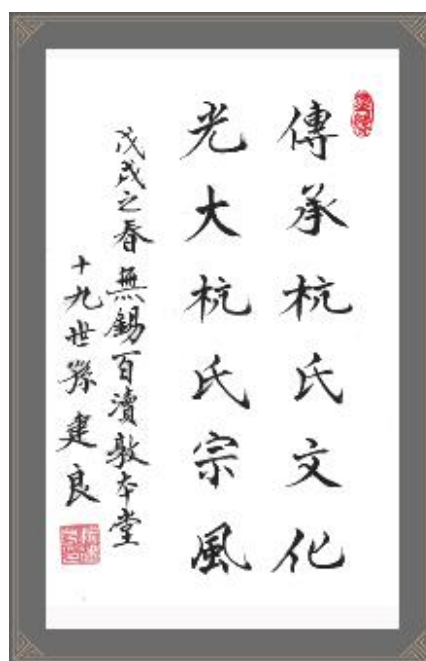 傳承杭氏文化
光大杭氏宗風
戊戌之春無錫百瀆敦本堂
十九世孫建良